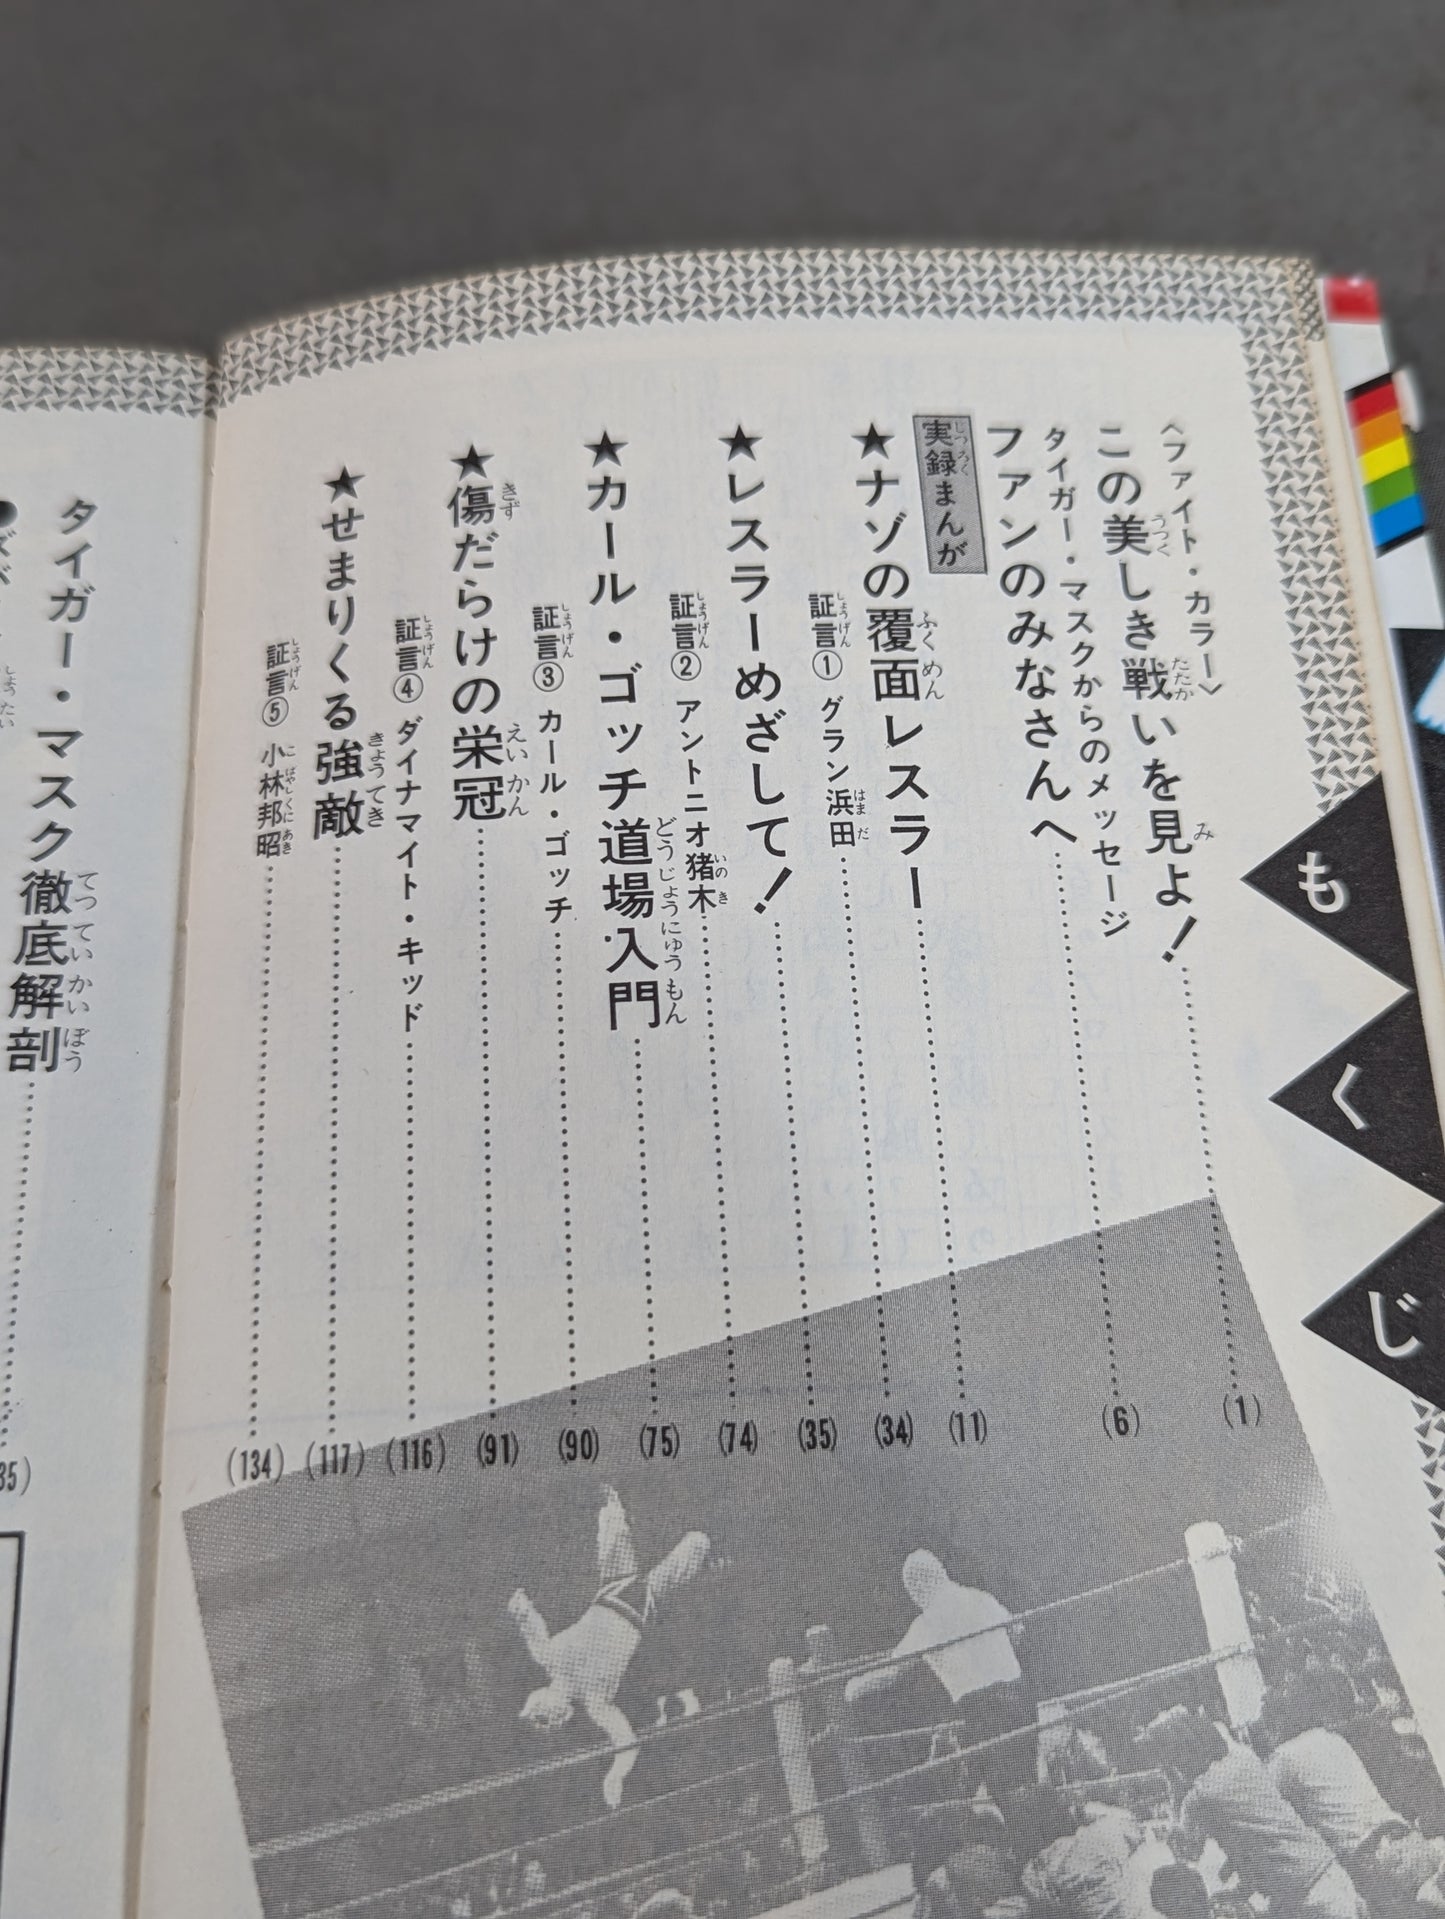 もくじ
〈ファイト・カラー〉
この美しき戦いを見よ！……(1)
タイガー・マスクからのメッセージ
ファンのみなさんへ……(6)
実録まんが
★ナゾの覆面レスラー……(11)
証言① グラン浜田……(34)
★レスラーめざして！……(35)
証言② アントニオ猪木……(74)
★カール・ゴッチ道場入門……(75)
証言③ カール・ゴッチ……(90)
★傷だらけの栄冠……(91)
証言④ ダイナマイト・キッド……(116)
★せまりくる強敵……(117)
証言⑤ 小林邦昭……(134)
タイガー・マスク徹底解剖……35)